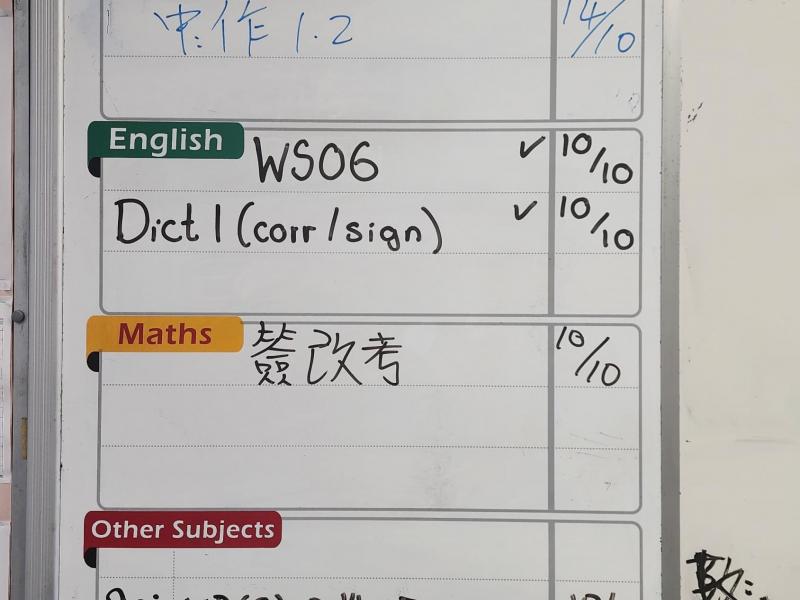 中作 1.2 14/10
English WS06 ✓ 10/10
Dict 1 (corr/sign) ✓ 10/10
Maths 簽改考 10/10
Other Subjects